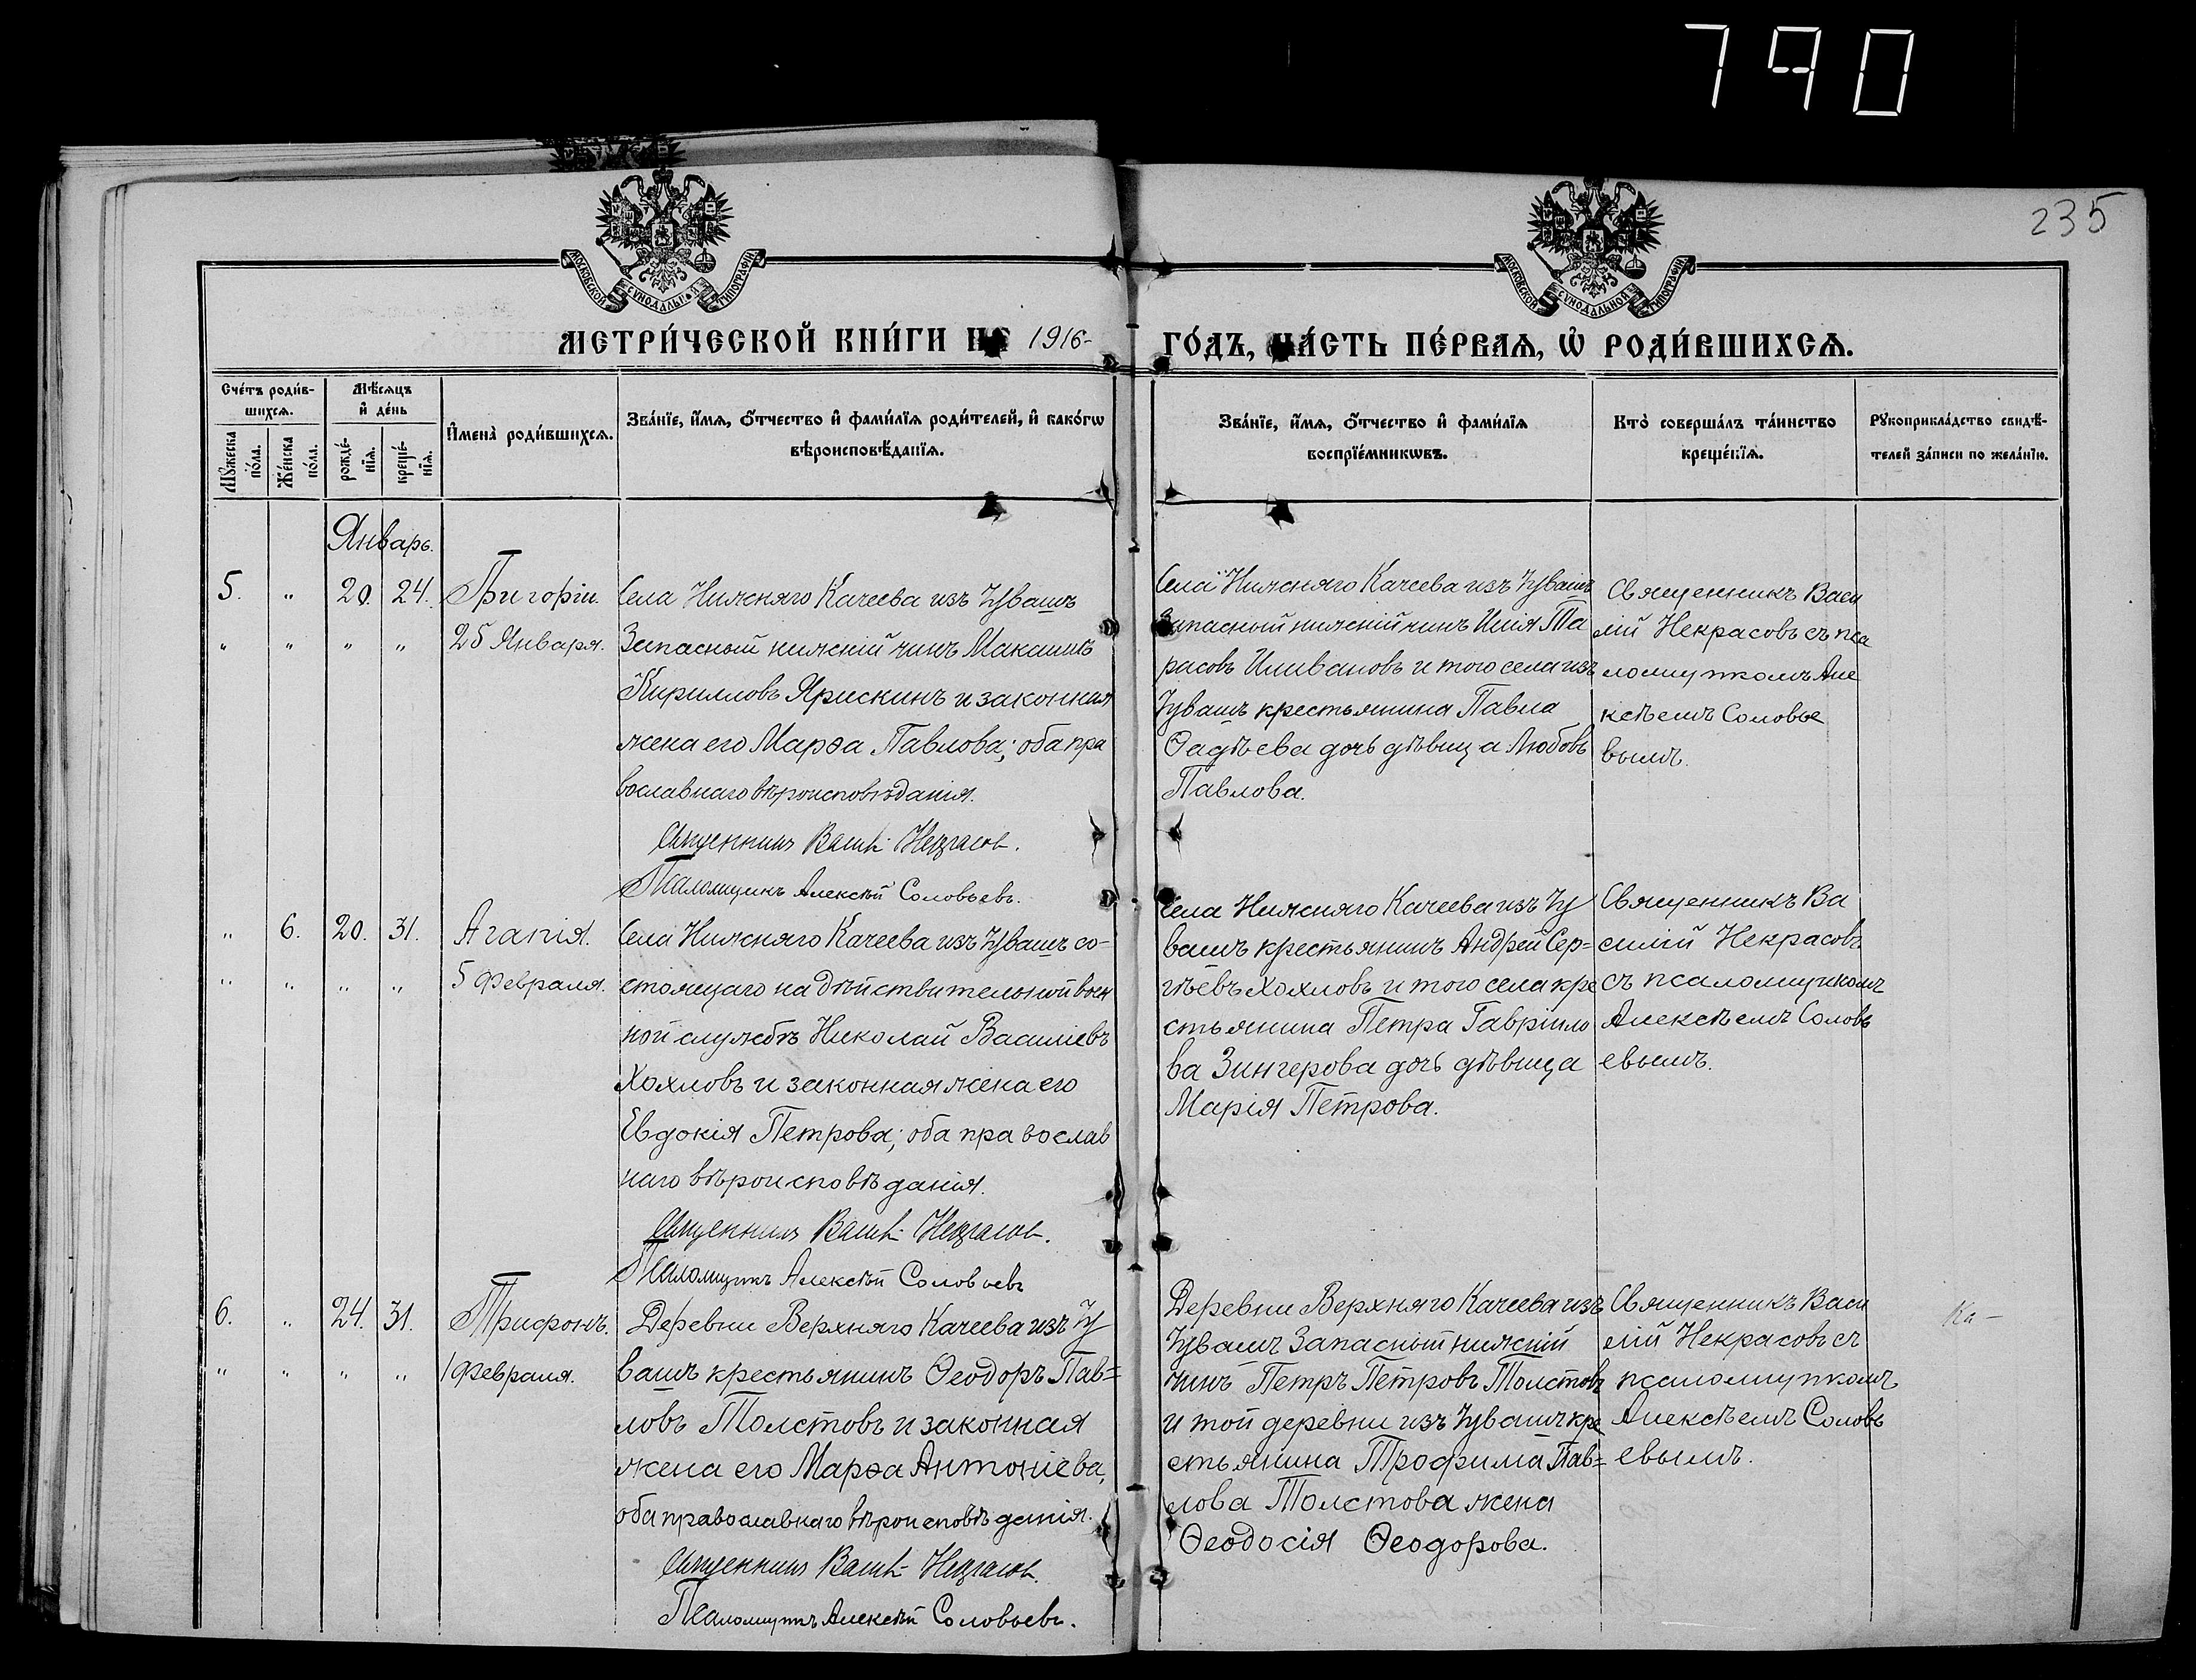 790
235
МОСКОВСКОЙ СѴНОДАЛЬНОЙ ТИПОГРАФІИ
МОСКОВСКОЙ СѴНОДАЛЬНОЙ ТИПОГРАФІИ
МЕТРИ́ЧЕСКОЙ КНИ́ГИ НА 1916-
ГО́ДЪ, ЧА́СТЬ ПЕ́РВАѦ, Ѽ РОДИ́ВШИХСѦ.
Сче́тъ роди́в-
шихсѧ.
Мѣ́сѧцъ
и҆ де́нь
Мꙋ́жеска по́ла.
Же́нска по́ла.
рожде́-
нїѧ.
креще́-
нїѧ.
И҆мена̀ роди́вшихсѧ.
Зва́нїе, и҆́мѧ, ѻ҆́тчество и҆ фами́лїѧ роди́телей, и҆ како́гѡ
вѣроисповѣ́данїѧ.
Зва́нїе, и҆́мѧ, ѻ҆́тчество и҆ фами́лїѧ
воспрїе́мникѡвъ.
Кто̀ соверша́лъ та́инство
креще́нїѧ.
Рꙋкоприкла́дство свидѣ́-
телей за́писи по жела́нїю.
Январь.
5. " 20. 24. Григорій.
" " " " 25 Января.
Села Нижняго Качеева изъ Чувашъ
Запасный нижній чинъ
Кирилловъ Ярискинъ и законная
жена его Марѳа Павлова; оба пра
вославнаго вѣроисповѣданія.
Священникъ Васил. Некрасовъ.
Псаломщикъ Алексѣй Соловьевъ.
Села Нижняго Качеева изъ Чувашъ
Запасный нижній чинъ Илія Та
расовъ Ишвановъ и того села изъ
Чувашъ крестьянина Павла
Ѳадѣева дочь дѣвица Любовь
Павлова.
Священникъ Васи
лій Некрасовъ съ пса
ломщикомъ Але
ксѣемъ Соловье
вымъ.
" 6. 20. 31. Агапія.
" " " " 5 Февраля.
Села Нижняго Качеева изъ Чувашъ со-
стоящаго на дѣйствительной воен
ной службѣ Николай Василіевъ
Хохловъ и законная жена его
Евдокія Петрова; оба православ
наго вѣроисповѣданія.
Священникъ Васил. Некрасовъ.
Псаломщикъ Алексѣй Соловьевъ
Села Нижняго Качеева изъ Чу
вашъ крестьянинъ Андрей Сер=
гѣевъ Хохловъ и того села кре
стьянина Петра Гавріило
ва Зингерова дочь дѣвица
Марія Петрова.
Священникъ Ва
силій Некрасовъ
съ псаломщикомъ
Алексѣемъ Соловь
евымъ.
6. " 24. 31. Трифонъ.
" " " " 1 Февраля.
Деревни Верхняго Качеева изъ Чу
вашъ крестьянинъ Ѳеодоръ Пав=
ловъ Толстовъ и законная
жена его Марѳа Антоніева,
оба православнаго вѣроисповѣданія.
Священникъ Васил. Некрасовъ.
Псаломщикъ Алексѣй Соловьевъ.
Деревни Верхняго Качеева изъ
Чувашъ Запасный нижній
чинъ Петръ Петровъ Толстовъ
и той деревни изъ Чувашъ кре
стьянина Трофима Пав=
лова Толстова жена
Ѳеодосія Ѳеодорова.
Священникъ Васи
лій Некрасовъ съ
псаломщикомъ
Алексѣемъ Соловь
евымъ.